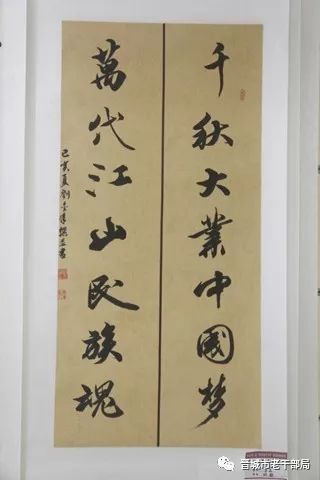 千秋大業中國梦
萬代江山民族魂
己亥夏劉
晋城市老干部局